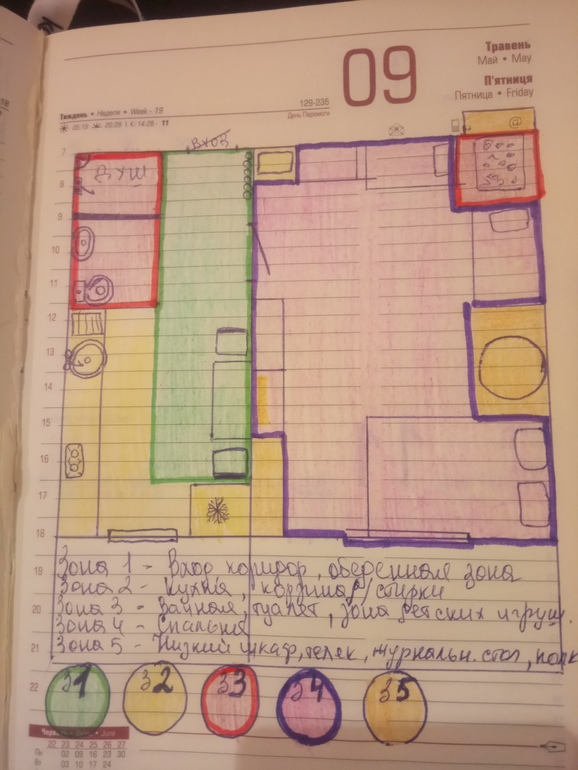 09
Травень
Май • May
П'ятниця
Пятница • Friday
Тиждень • Неделя • Week - 19
129-236
День Перемоги
@
ВХОД
ДУШ
7
8
9
10
11
12
13
14
15
16
17
18
19
20
21
22
Зона 1 - Вход коридор, обеденная зона
Зона 2 - Кухня, корзина/стирки
Зона 3 - Ванная, туалет, зона детских игруш.
Зона 4 - Спальня
Зона 5 - Низкий шкаф, телек, журнальн. стол, полк
З1 З2 З3 З4 З5
22 23 24 25 26 27